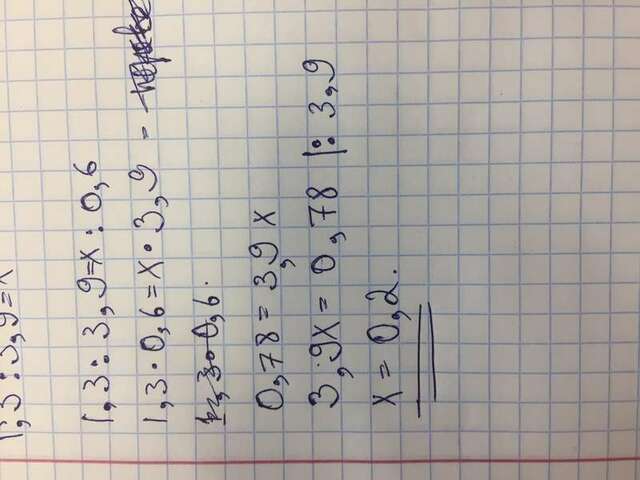 1,3:3,9=x
1,3:3,9=x:0,6
1,3·0,6=x·3,9 -
1,3·0,6.
0,78=3,9x
3,9x=0,78 |:3,9
x=0,2.